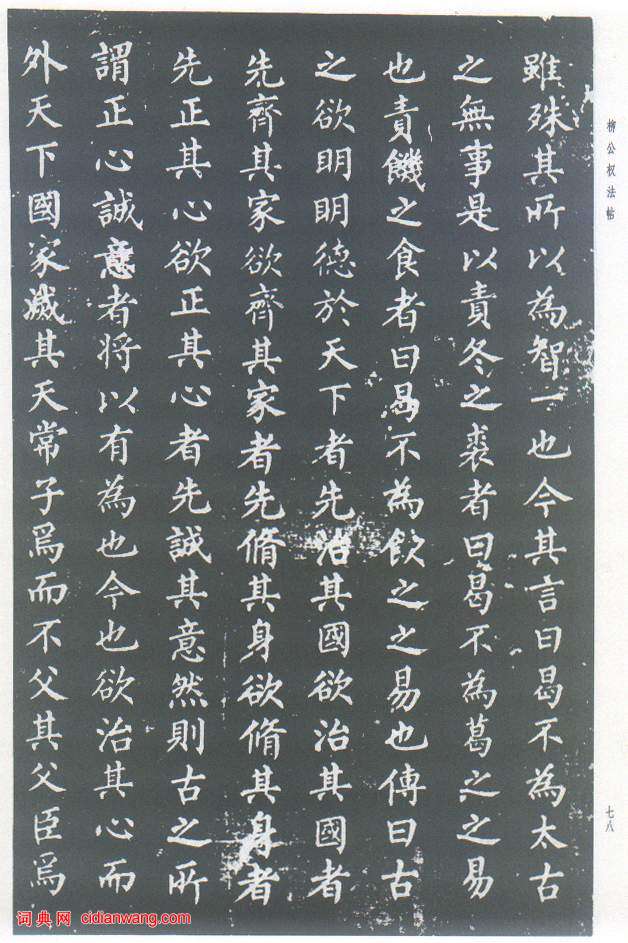 柳公权法帖
雖殊其所以為智一也今其言曰曷不為太古
之無事是以責冬之裘者曰曷不為葛之之易
也責饑之食者曰曷不為飲之之易也傳曰古
之欲明明德於天下者先治其國欲治其國者
先齊其家欲齊其家者先脩其身欲脩其身者
先正其心欲正其心者先誠其意然則古之所
謂正心誠意者将以有為也今也欲治其心而
外天下國家滅其天常子焉而不父其父臣焉
七八
词典网 cidianwang.com